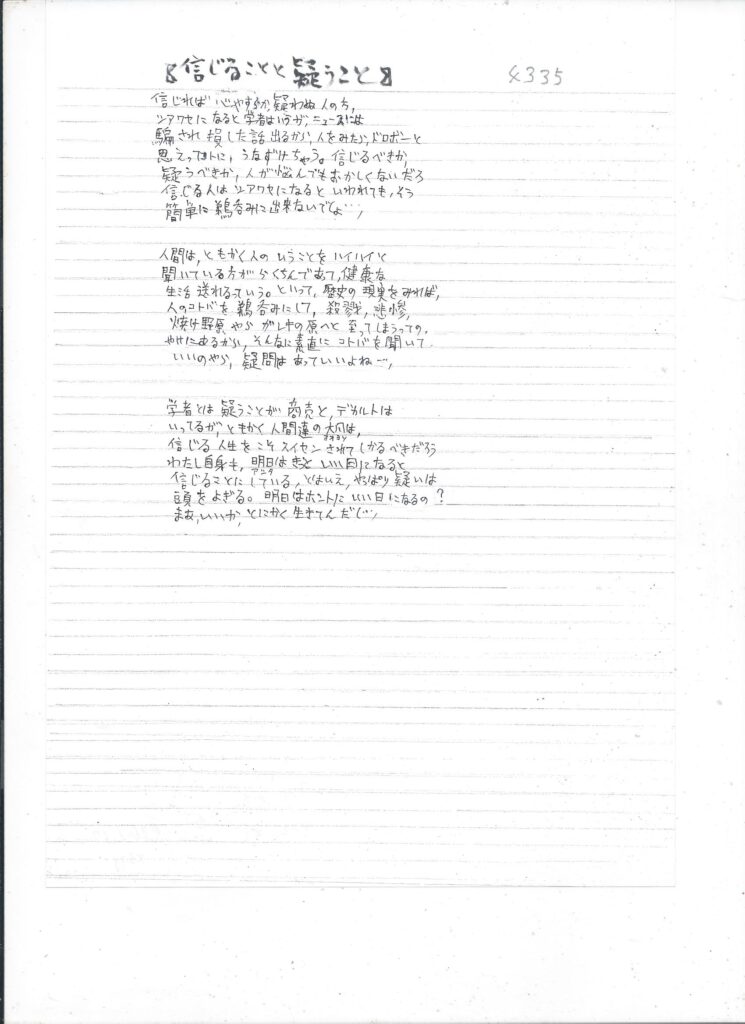 【信じることと疑うこと】 4335
信じれば心やすらか、疑わぬ人の方、
シアワセになると学者はいうが、ニュースには
騙され損した話出るから、人をみたら、ドロボーと
思えってコトに、うなずけちゃう。信じるべきか、
疑うべきか、人が悩んでもおかしくないだろ
信じる人はシアワセになるといわれても、そう
簡単に鵜呑みに出来ないでしょ…、
人間は、ともかく人のいうことをハイハイと
聞いている方がらくちんであって、健康な
生活送れるっていう。といって、歴史の現実をみれば、
人のコトバを鵜呑みにして、殺戮、悲惨、
焼け野原やらガレキの原へと至ってしまうっての、
やけにあるから、そんなに素直にコトバを聞いて
いいのやら、疑問はあっていいよね…、
学者とは疑うことが商売と、デカルトは
いってるが、ともかく人間達の大凡は、
信じる人生をこそスイセンされてしかるべきだろう
わたし自身も、明日はきっといい日になると
信じることにしている、とはいえ、やっぱり疑いは
頭をよぎる。明日はホントにいい日になるの?
まあ、いいか、とにかく生きてんだし…、